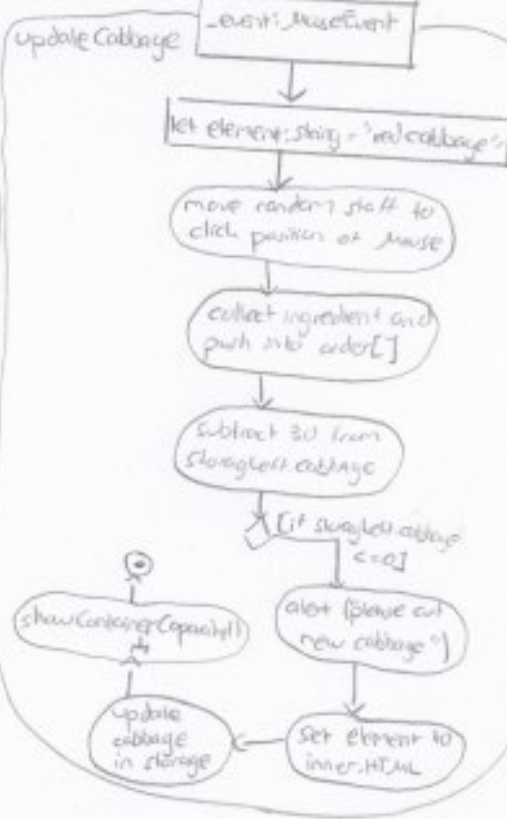 updateCabbage
_event: MouseEvent
let element: string = "red cabbage"
move random staff to
click position of Mouse
collect ingredient and
push into order[]
subtract 30 from
storageLeft.cabbage
[if storageLeft.cabbage
<=0]
alert ("please cut
new cabbage")
set element to
inner.HTML
update
cabbage
in storage
showContainerCapacity()